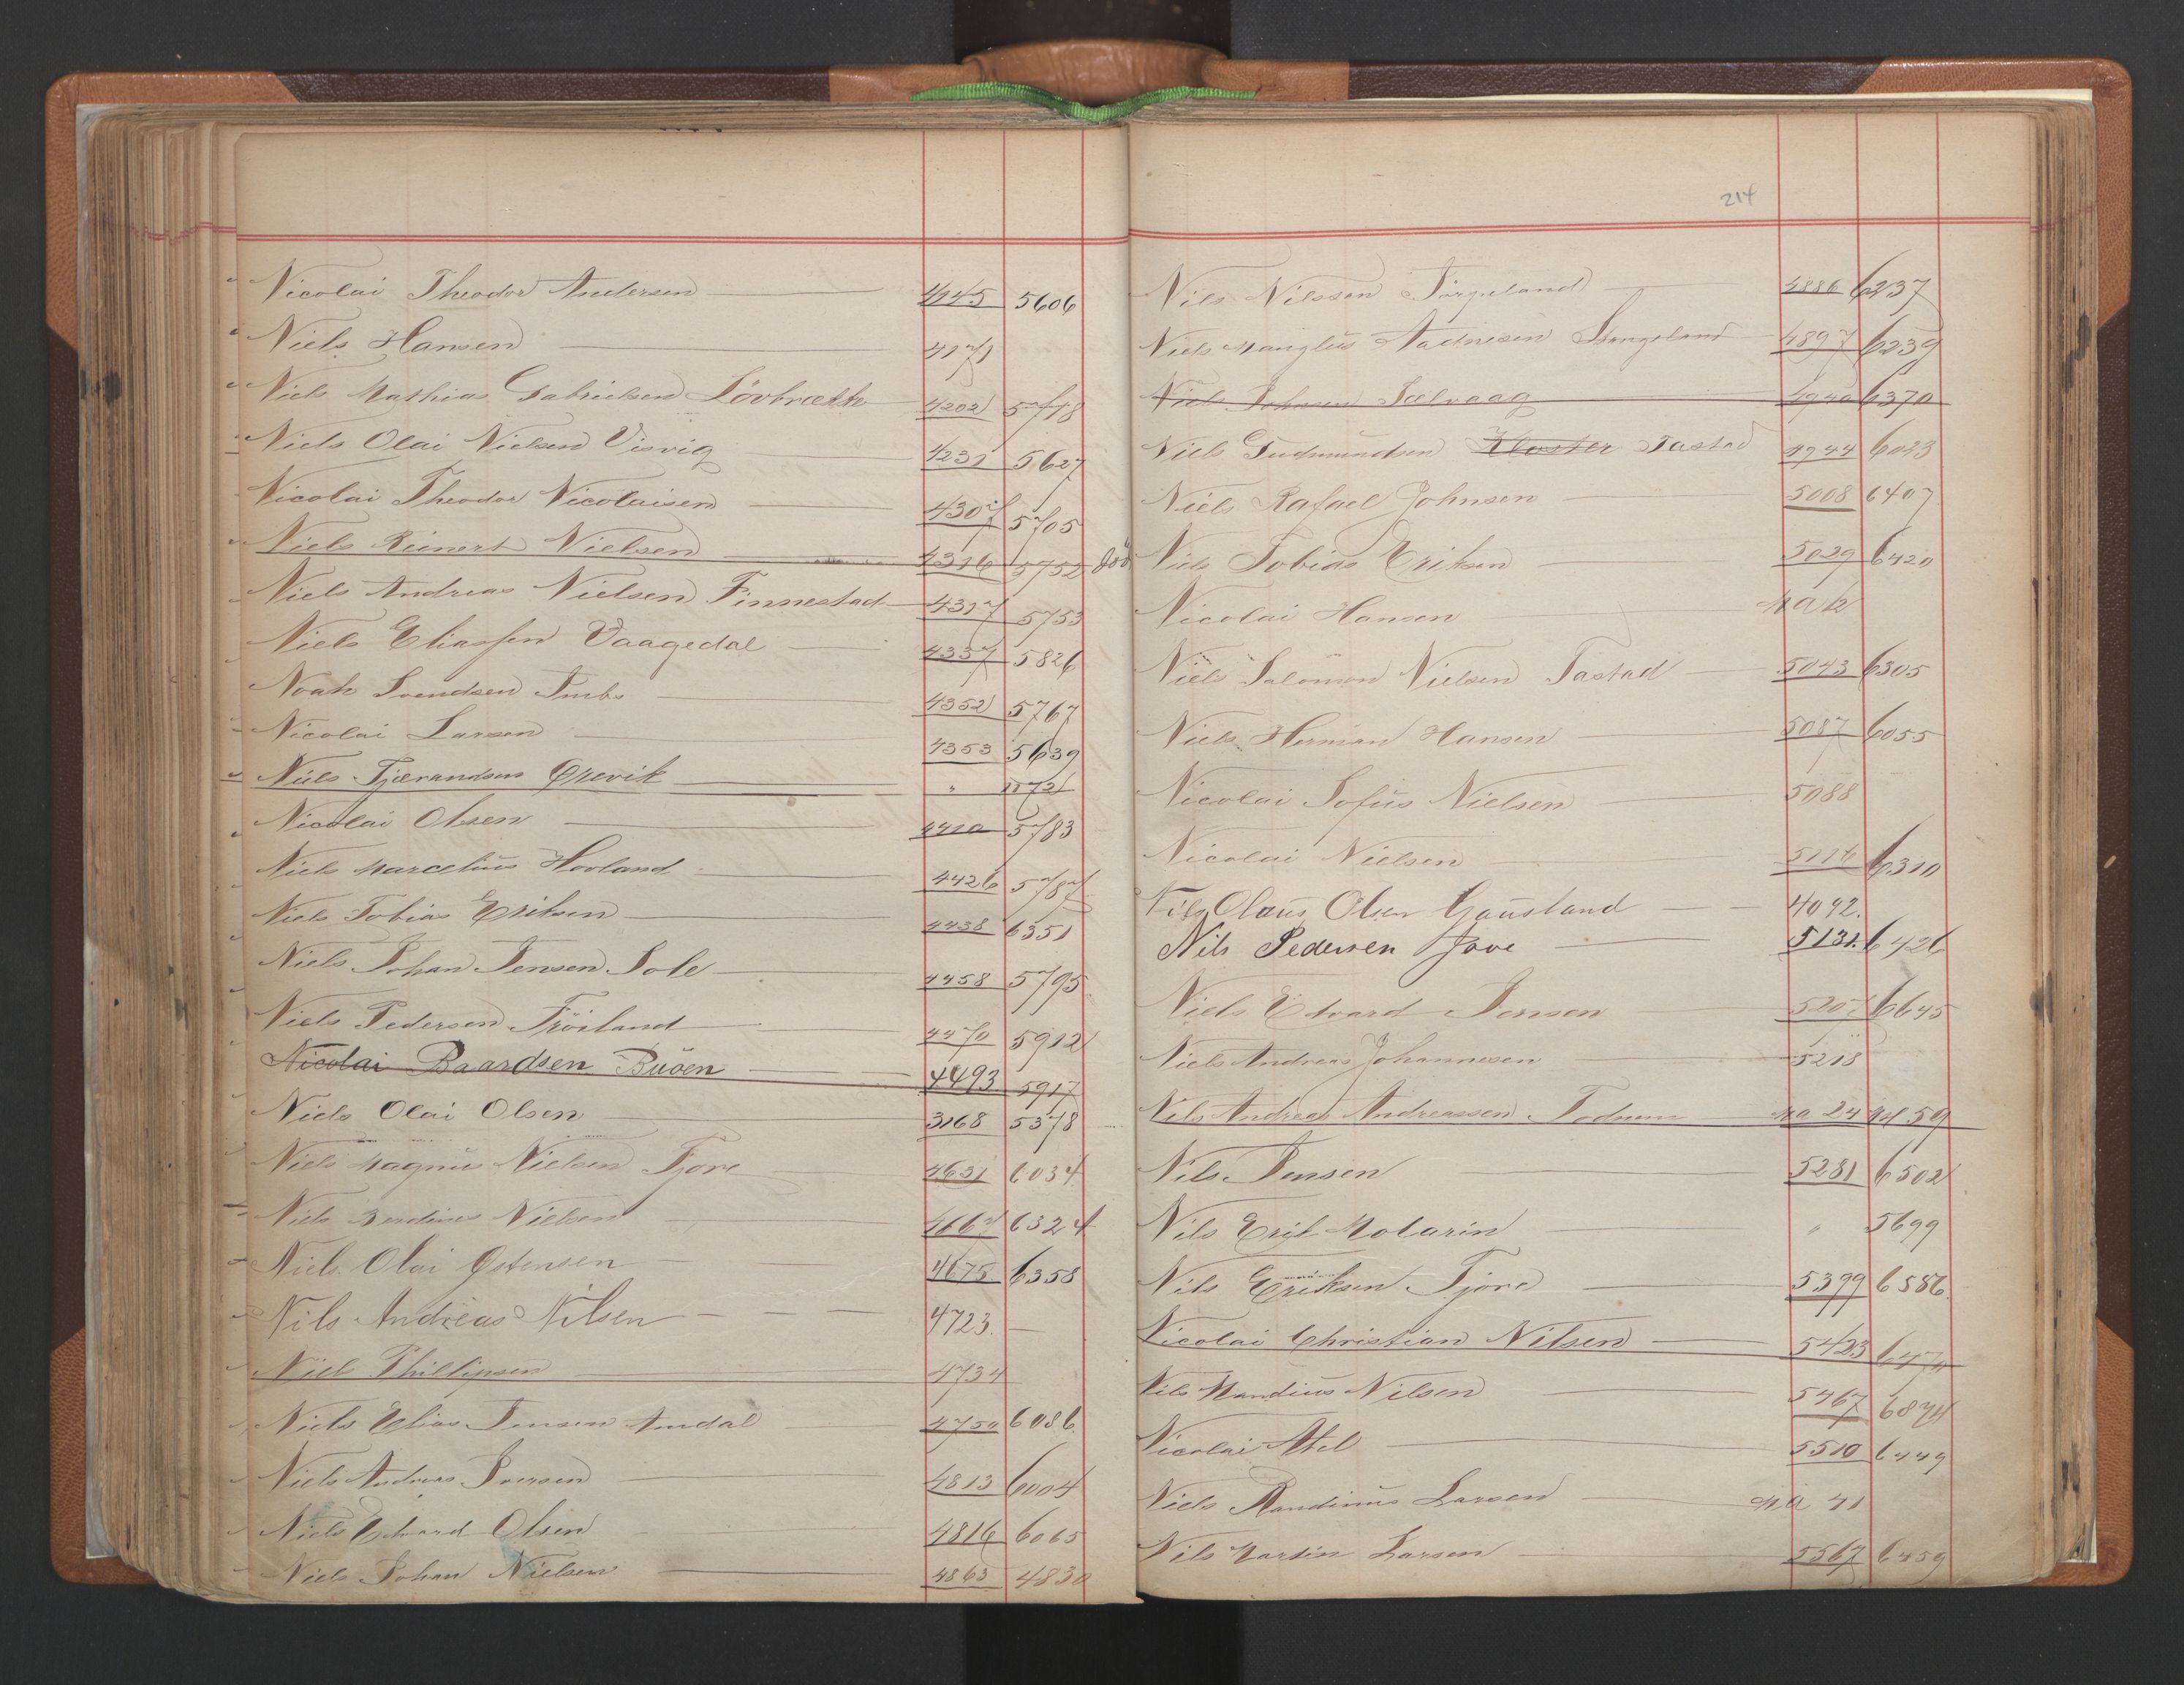 Nicolai Theodor Andersen 4145 5606
Niels Hansen 4171
Niels Mathias Gabrielsen Lövbrække 4202 5718
Niels Olai Nielsen Visvig 4231 5627
Nicolai Theodor Nicolaisen 4307 5705
Niels Reinert Nielsen 4316 5752 död
Niels Andreas Nielsen Finnestad 4317 5753
Niels Eliassen Vaagedal 4337 5826
Noah Svendsen 4352 5767
Nicolai Larsen 4353 5639
Niels Tjerandsen Grevik "
Nicolai Olsen 4410 5783
Niels Marcelius Hovland 4426 5787
Niels Tobias Eriksen 4438 6351
Niels Johan Jensen Sole 4458 5795
Niels Pedersen Fröiland 4470 5912
Nicolai Baardsen Buöen 4493 5917
Niels Olai Olsen 3168 5378
Niels Magnus Nielsen Fjore 4631 6034
Niels Berdines Nielsen 4667 6324
Niels Olai Östensen 4675 6358
Nils Andreas Nilsen 4723.
Niels Phillipsen 4734
Niels Elias Jensen Amdal 4750 6086
Niels Andreas Iversen 4813 6004
Niels Edvard Olsen 4816 6065
Niels Johan Nielsen 4863 4830
214
Nils Nilssen Törgeland 4886 6237
Niels Manglus Aadnesen Stangeland 4897 6239
Niels Johnsen Selvaag 4940 6370
Niels Gudmundsen Kloster Tastad 4944 6023
Niels Rafael Johnsen 5008 6407
Niels Tobias Eriksen 5029 6420
Nicolai Hansen
Niels Salomon Nielsen Tastad 5043 6305
Niels Herman Hansen 5087 6055
Nicolai Sofus Nielsen 5088
Nicolai Nielsen 5116 6310
Nils Olaus Olsen Gausland 4092.
Nils Pedersen Fjove 5131. 6426
Niels Edvard Jensen 5207 6645
Niels Andreas Johannesen 5218
Nils Andreas Andreassen Todnem Ma 24
Nils Jensen 5281 6502
Nils Erik Molarin " 5699
Nils Eriksen Fjore 5399 6586
Nicolai Christian Nilsen 5423 6470
Nils Mandius Nilsen 5467 6874
Nicolai Abel 5510 6449
Niels Randinus Larsen Ma 41
Nils Martin Larsen 5567 6459